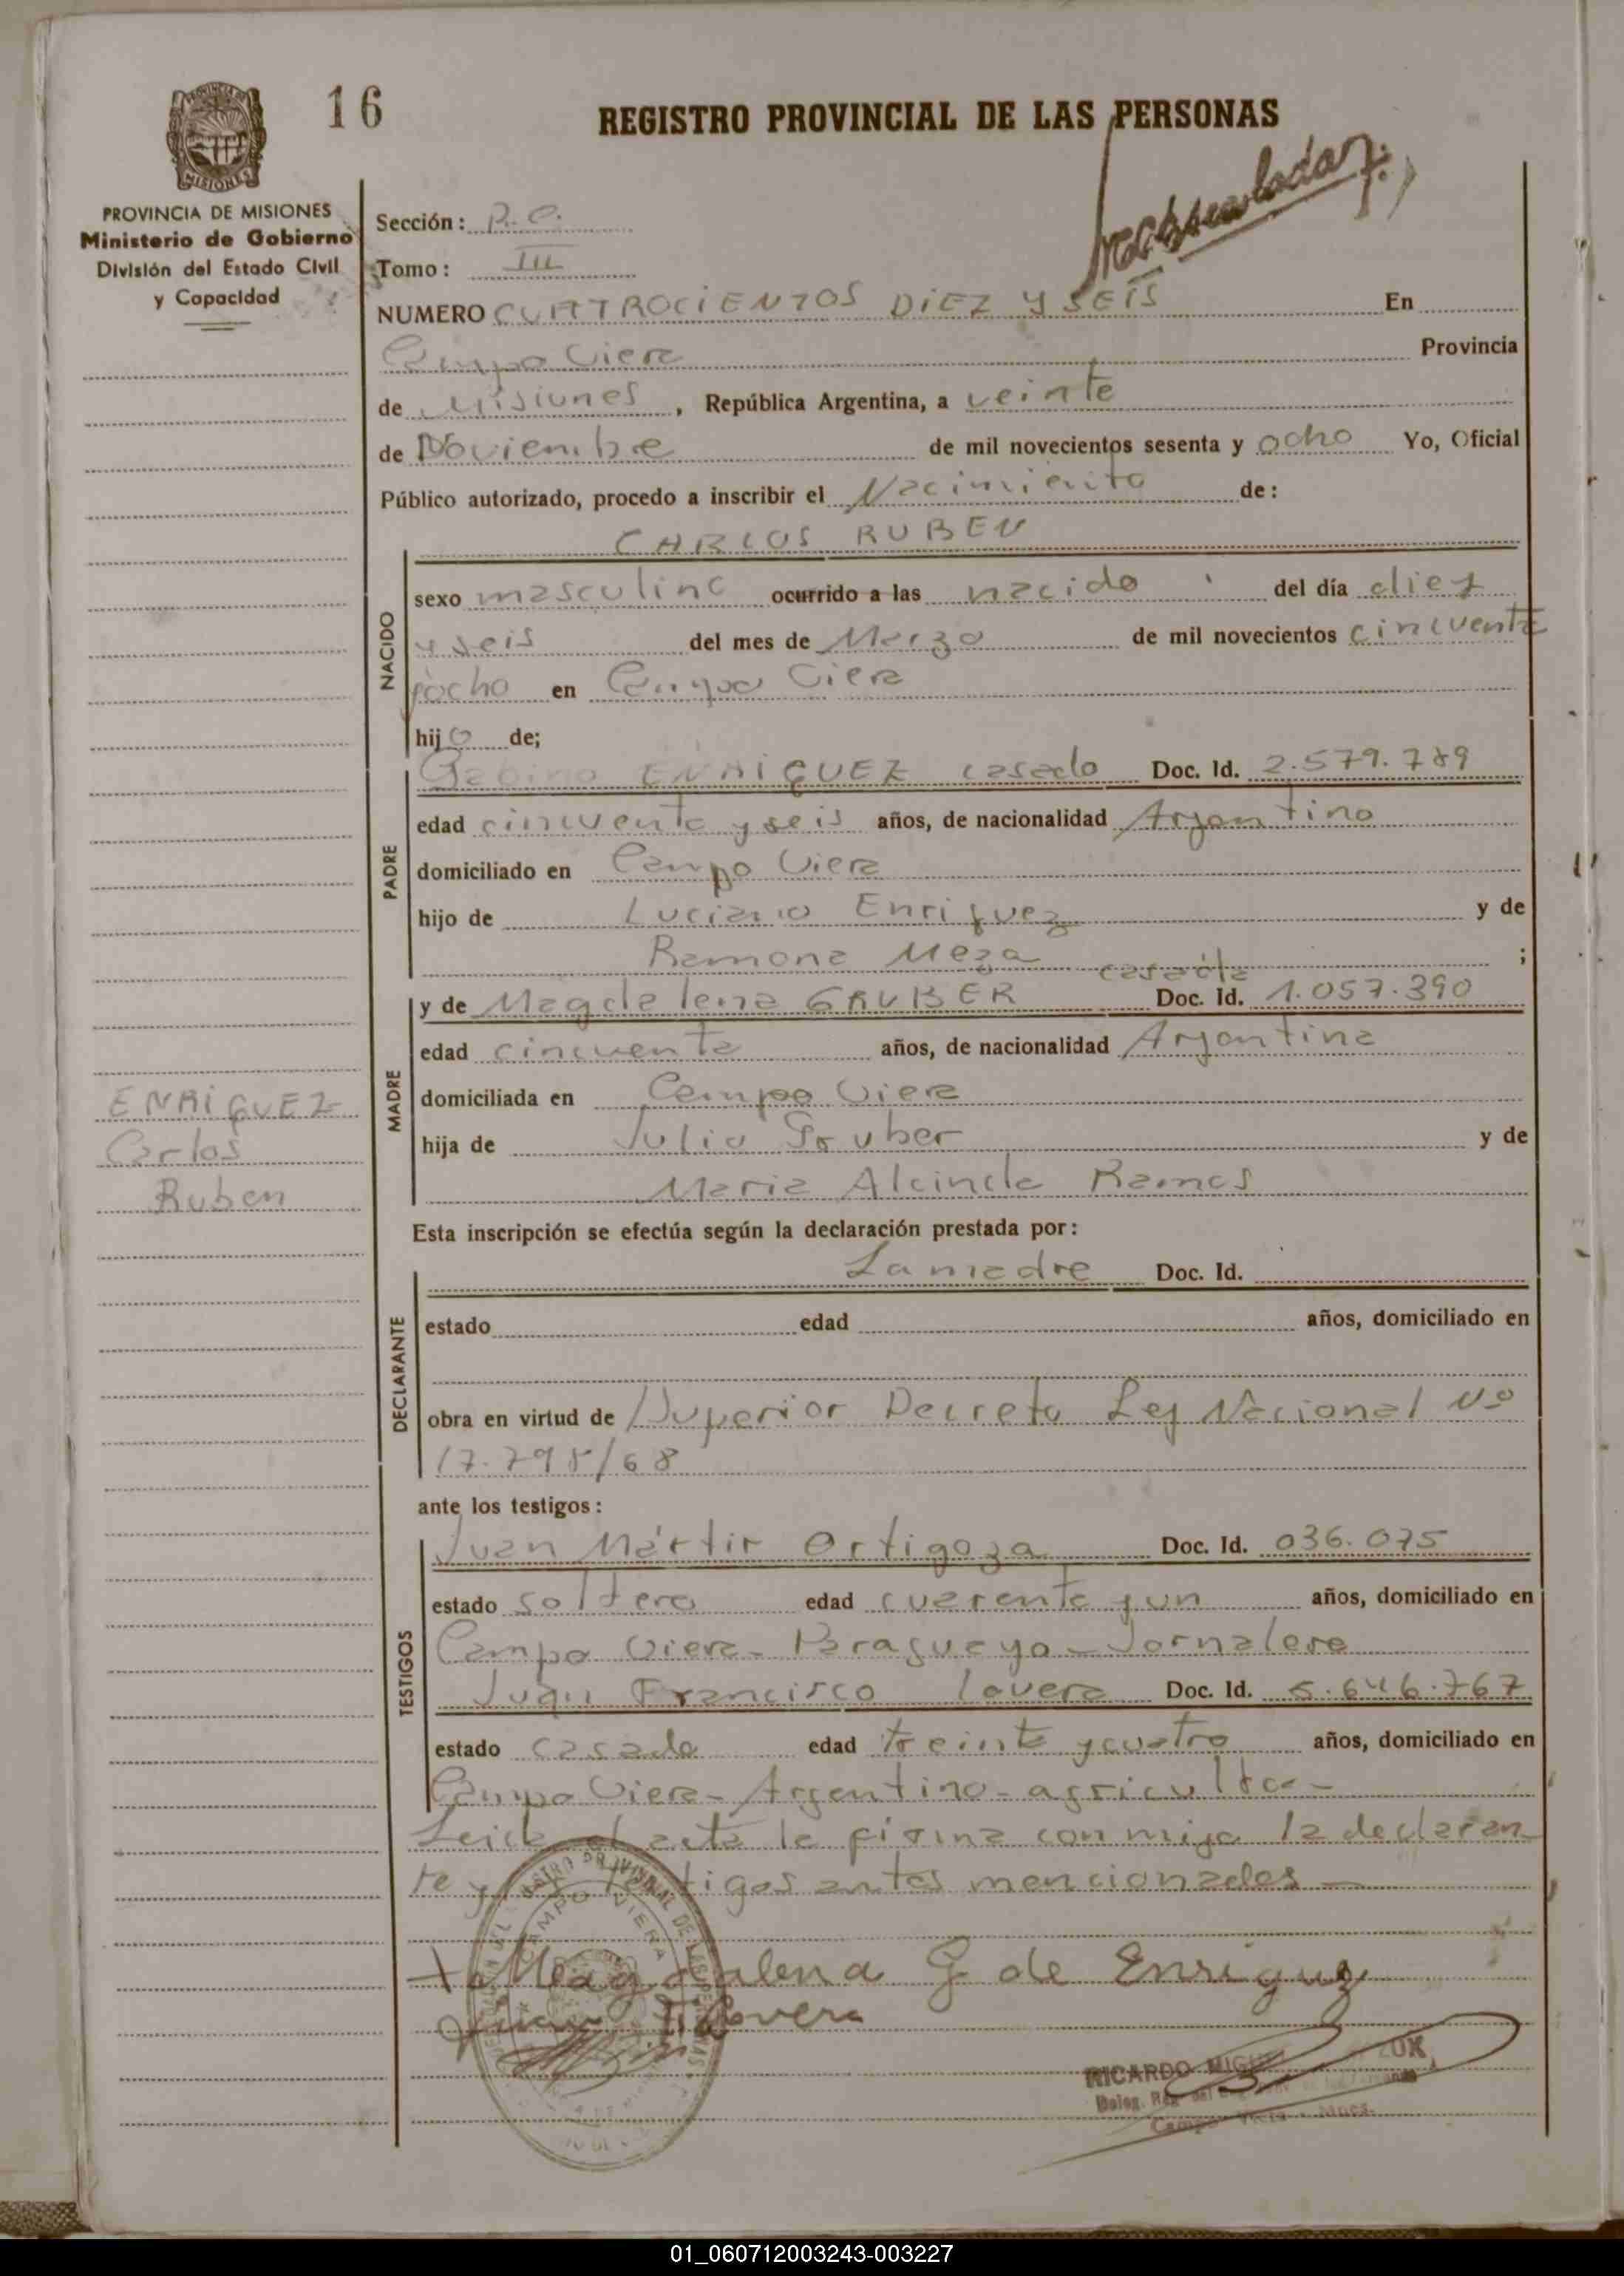 16
REGISTRO PROVINCIAL DE LAS PERSONAS
MISIONES
PROVINCIA DE MISIONES
Ministerio de Gobierno
División del Estado Civil
y Capacidad
Sección: P.C.
Tomo: III
NUMERO CUATROCIENTOS DIEZ Y SEIS En
Campo Viera Provincia
de Misiones, República Argentina, a veinte
de Noviembre de mil novecientos sesenta y ocho Yo, Oficial
Público autorizado, procedo a inscribir el Nacimiento de:
CARLOS RUBEN
NACIDO
sexo masculino ocurrido a las nacido del día diez
y seis del mes de Marzo de mil novecientos cincuenta
yocho en Campo Viera
hijo de;
PADRE
Gabino ENRIQUEZ casado Doc. Id. 2.579.789
edad cincuenta y seis años, de nacionalidad Argentino
domiciliado en Campo Viera
hijo de Luciano Enriquez y de
Ramona Meza ;
casada
MADRE
y de Magdalena GRUBER Doc. Id. 1.057.390
edad cincuenta años, de nacionalidad Argentina
domiciliada en Campo Viera
hija de Julio Gruber y de
Maria Alcinda Ramos
ENRIQUEZ
Carlos
Ruben
Esta inscripción se efectúa según la declaración prestada por:
DECLARANTE
La madre Doc. Id.
estado edad años, domiciliado en
obra en virtud de Superior Decreto Ley Nacional Nº
17.795/68
ante los testigos:
TESTIGOS
Juan Mártir Ortigoza Doc. Id. 036.075
estado soltero edad cuarenta y un años, domiciliado en
Campo Viera - Paraguayo - Jornalero
Juan Francisco Lovera Doc. Id. 5.646.767
estado casado edad treinta y cuatro años, domiciliado en
Campo Viera - Argentino - agricultor -
Leida el acta la firma conmigo la declaran-
te y los testigos antes mencionados —
Magdalena G de Enriquez
Juan F Lovera
CAMPO VIERA
RICARDO MIGUEL
Campo Viera - Mnes.
01_060712003243-003227